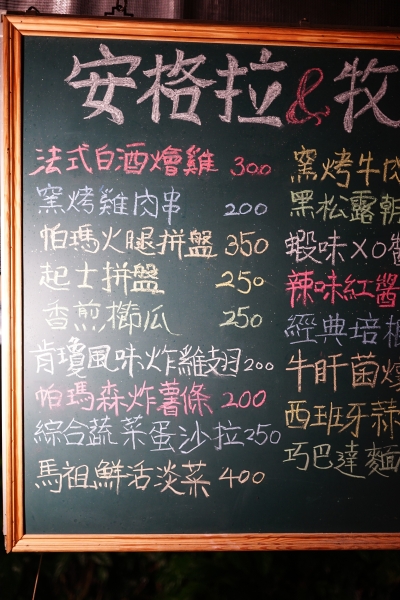 安格拉&牧
法式白酒燴雞 300
窯烤雞肉串 200
帕瑪火腿拼盤 350
起士拼盤 250
香煎櫛瓜 250
肯瓊風味炸雞翅 200
帕瑪森炸薯條 200
綜合蔬菜蛋沙拉 250
馬祖鮮活淡菜 400
窯烤牛肉
黑松露
蝦味XO醬
辣味紅醬
經典培根
牛肝菌燉
西班牙蒜
巧巴達麵